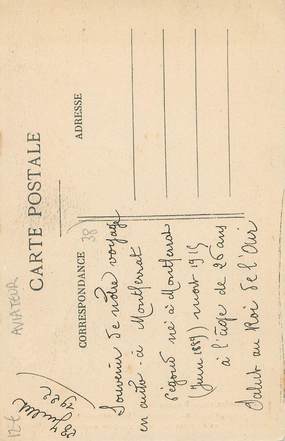 CARTE POSTALE
CORRESPONDANCE
ADRESSE
38
AVIATEUR
12€
Juillet
1922
Souvenir de notre voyage
en auto - à Montferrat
Pégoud né à Montferrat
(Juin 1889) mort 1915
à l'âge de 26 ans
Salut au Roi de l'Air